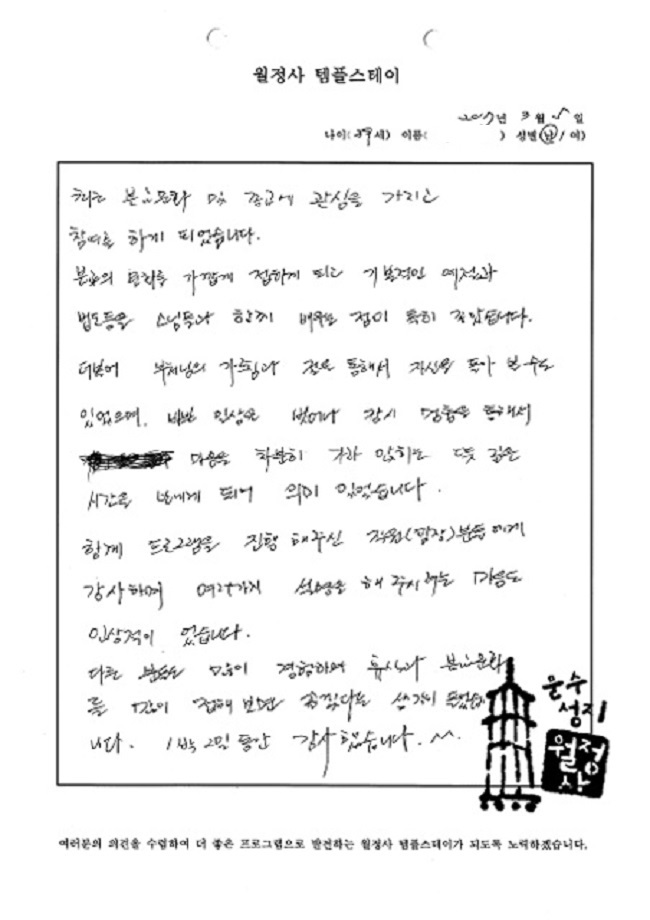 월정사 템플스테이
2017년 3월 일
나이( 세) 이름( ) 성별(남/여)
관심을 가지고
참여를 하게 되었습니다.
가깝게 접하게 되고 기본적인 예절과
법도등을 스님들과 함께 배우는 점이 특히 좋았습니다.
더불어 부처님의 가르침과 절을 통해서 자신을 돌아 볼 수도
있었으며, 바쁜 일상을 벗어나 잠시 명상을 통해서
마음을 차분히 가라 앉히는 뜻 깊은
시간을 보내게 되어 의미 있었습니다.
함께 프로그램을 진행 해주신 직원(팀장)분들에게
감사하며 여러가지 설명을 해 주시려는 마음도
인상적이 었습니다.
다른 분들도 많이 경험하여 휴식과
를 많이 접해 보면 좋겠다는 생각이 들었습
니다. 1박 2일 동안 감사 했습니다. ^^.
문수
성지
월정
사
여러분의 의견을 수렴하여 더 좋은 프로그램으로 발전하는 월정사 템플스테이가 되도록 노력하겠습니다.